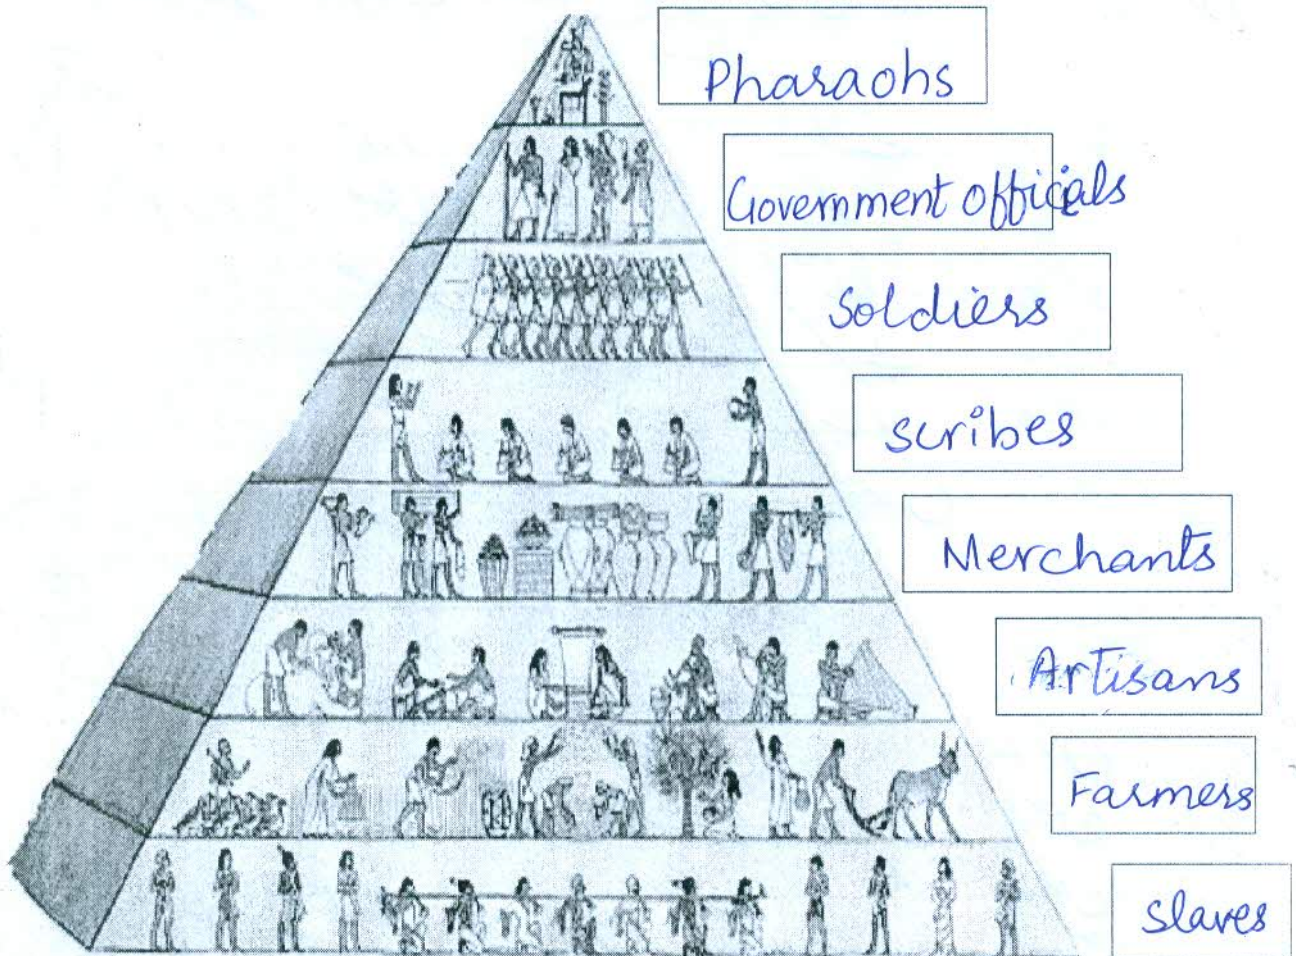 Pharaohs
Government officials
Soldiers
scribes
Merchants
Artisans
Farmers
slaves